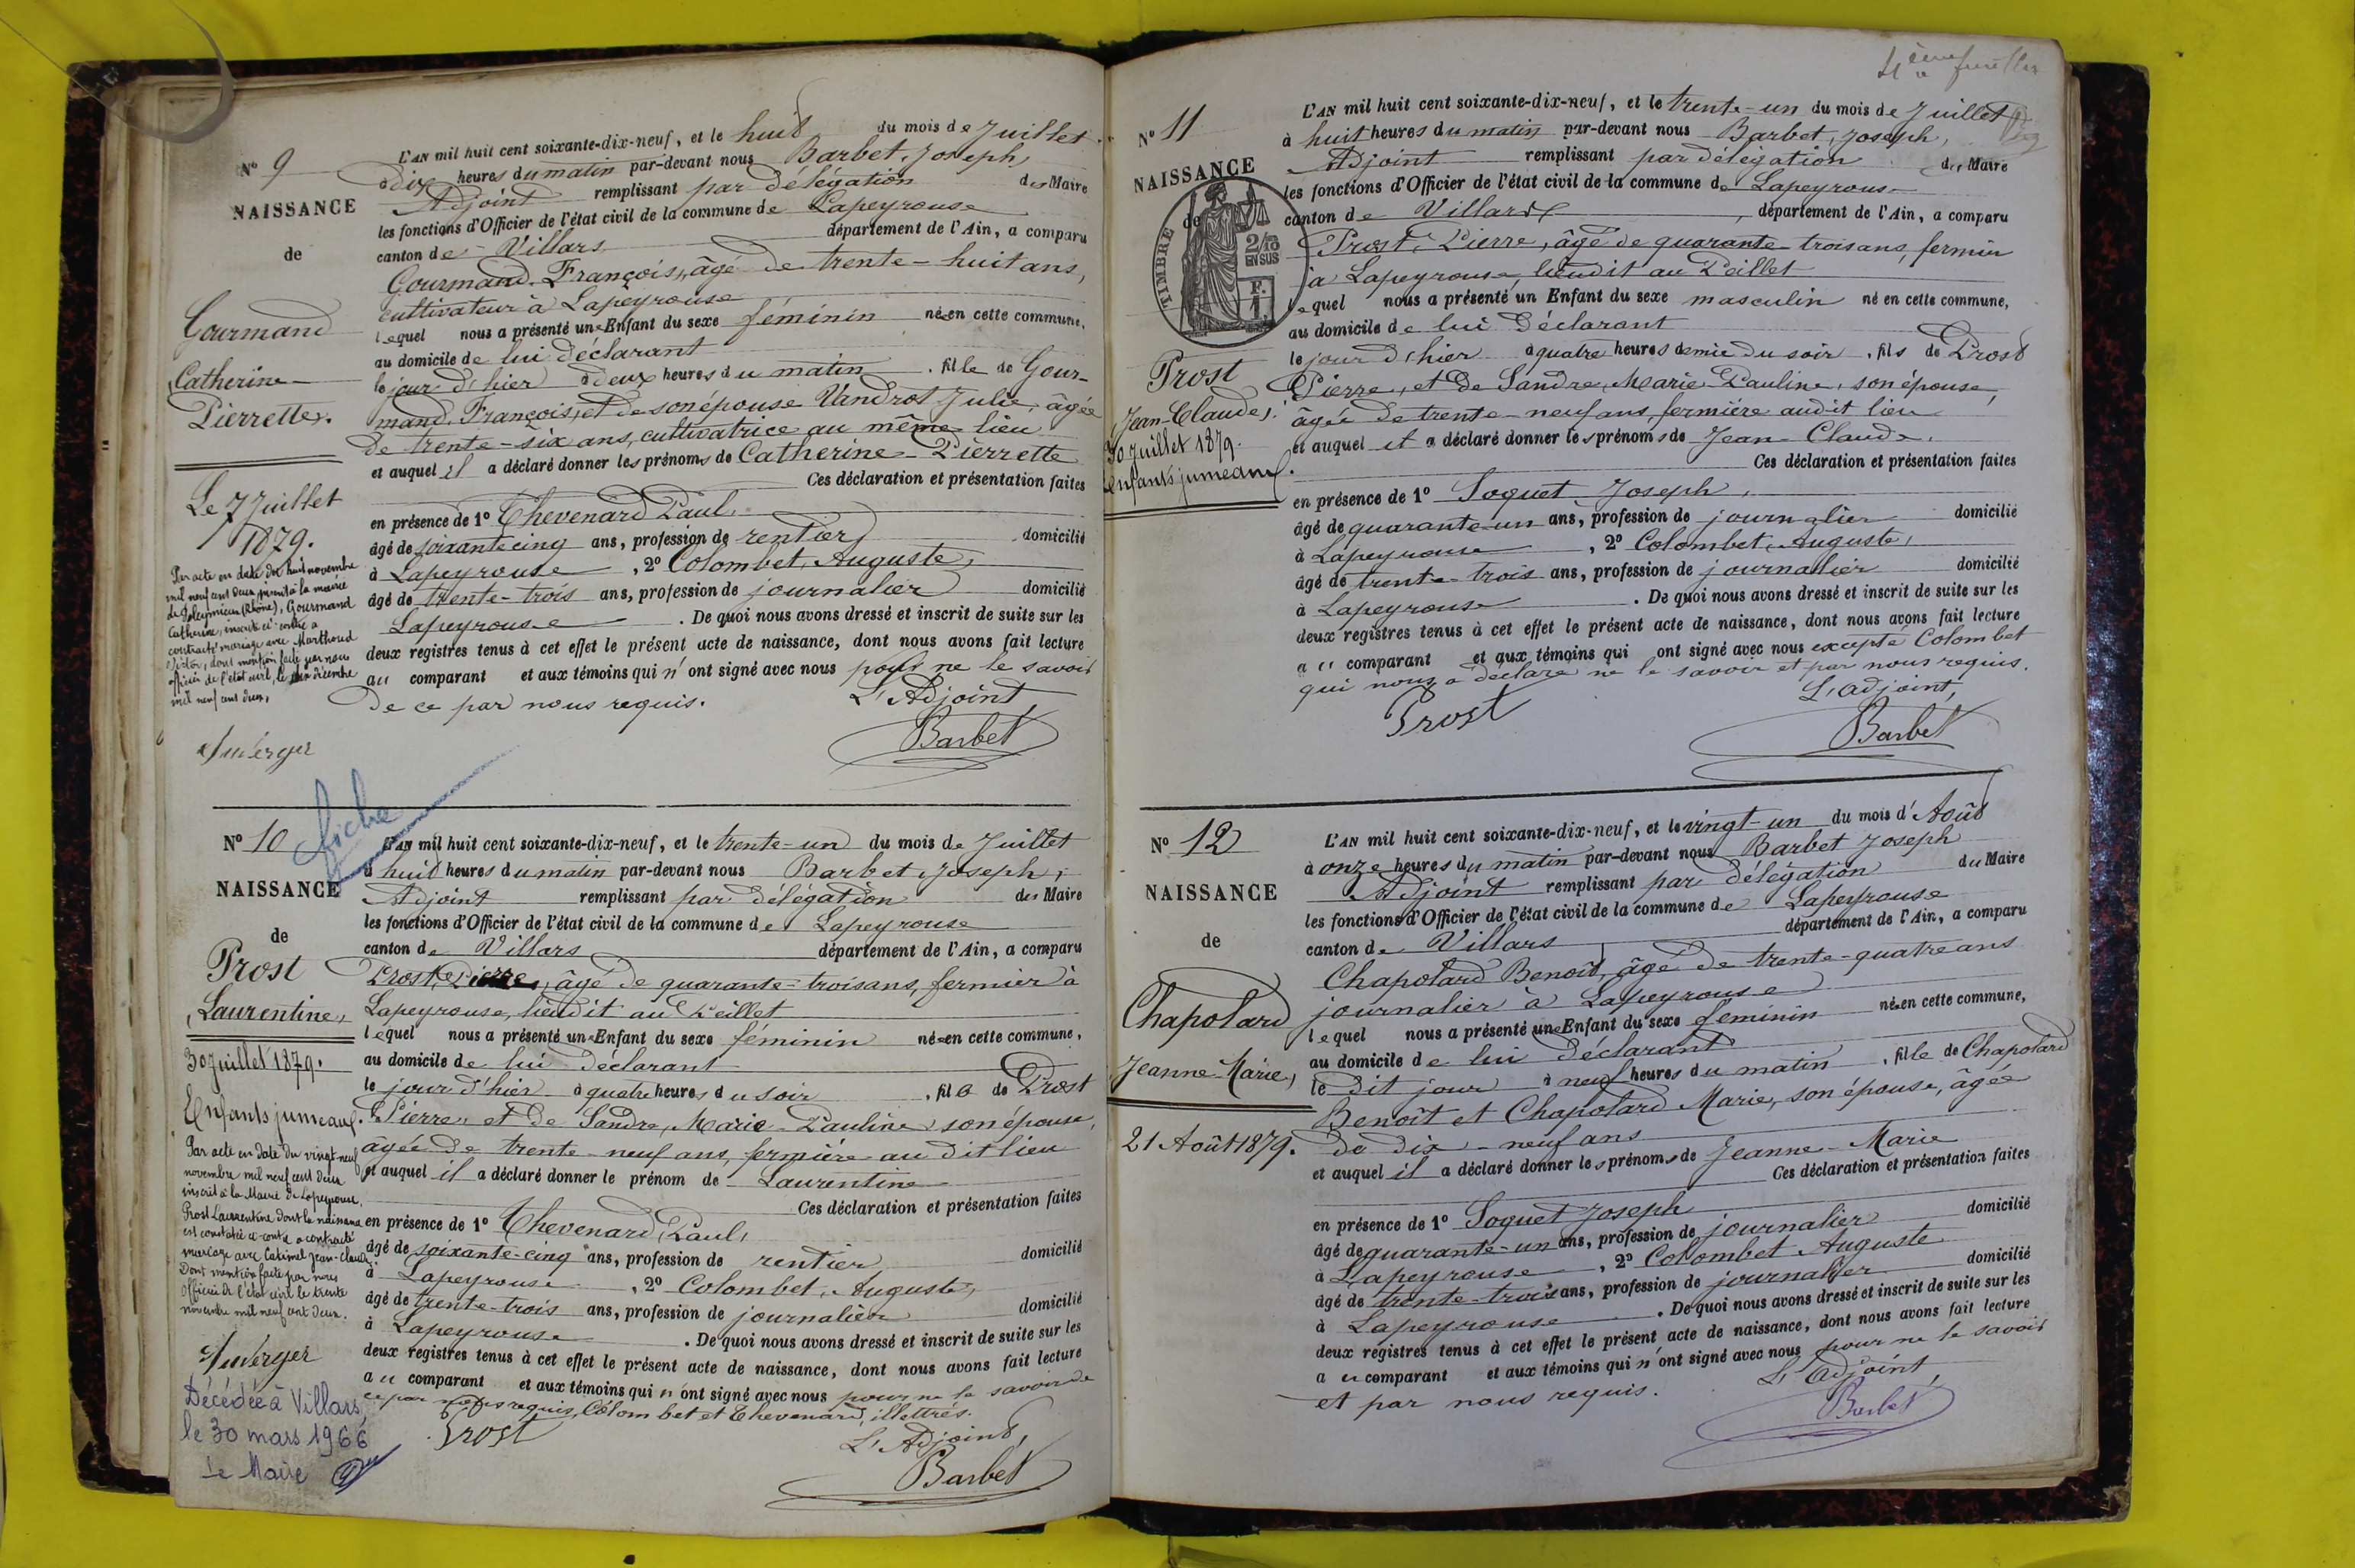 N° 9
NAISSANCE
de
Gourmand
Catherine
Pierrette.
Le 7 Juillet
1879.
Par acte en date du huit novembre
mil neuf cent deux, inscrit à la mairie
de Poleymieux (Rhône), Gourmand
Catherine, inscrite ci-contre a
contracté mariage avec Marthoud
dont mention faite par nous
officier de l'état civil, le décembre
mil neuf cent deux,
L'AN mil huit cent soixante-dix-neuf, et le huit du mois de Juillet
à dix heures du matin par-devant nous Barbet, Joseph,
Adjoint remplissant par délégation du Maire
les fonctions d'Officier de l'état civil de la commune de Lapeyrouse
canton de Villars département de l'Ain, a comparu
Gourmand François, âgé de trente-huit ans,
cultivateur à Lapeyrouse
lequel nous a présenté une Enfant du sexe féminin née en cette commune,
au domicile de lui déclarant
le jour d'hier à deux heures du matin, fille de Gour-
mand François, et de son épouse Vandrot Julie, âgée
de trente-six ans, cultivatrice au même lieu
et auquel il a déclaré donner les prénoms de Catherine-Pierrette
Ces déclaration et présentation faites
en présence de 1° Chevenard Paul,
âgé de soixante cinq ans, profession de rentier domicilié
à Lapeyrouse, 2° Colombet, Auguste,
âgé de trente-trois ans, profession de journalier domicilié
Lapeyrouse. De quoi nous avons dressé et inscrit de suite sur les
deux registres tenus à cet effet le présent acte de naissance, dont nous avons fait lecture
au comparant et aux témoins qui n'ont signé avec nous pour ne le savoir
de ce par nous requis. L'Adjoint
Barbet
fiche
N° 10
NAISSANCE
de
Prost
Laurentine,
30 Juillet 1879.
Enfants jumeaux.
Par acte en date du vingt-neuf
novembre mil neuf cent deux
inscrit à la Mairie de Lapeyrouse,
Prost Laurentine dont la naissance
est constatée ci-contre a contracté
mariage avec Catimel Jean-Claude.
Dont mention faite par nous
Officier de l'état civil le trente
novembre mil neuf cent deux.
Décédée à Villars,
le 30 mars 1966
Le Maire
L'AN mil huit cent soixante-dix-neuf, et le trente-un du mois de Juillet
à huit heures du matin par-devant nous Barbet, Joseph,
Adjoint remplissant par délégation du Maire
les fonctions d'Officier de l'état civil de la commune de Lapeyrouse
canton de Villars département de l'Ain, a comparu
Prost, Pierre, âgé de quarante-trois ans, fermier à
Lapeyrouse, lieu dit au Peillet
lequel nous a présenté une Enfant du sexe féminin née en cette commune,
au domicile de lui déclarant
le jour d'hier à quatre heures du soir, fille de Prost
Pierre, et de Sandre, Marie-Pauline, son épouse,
âgée de trente-neuf ans, fermière au dit lieu
et auquel il a déclaré donner le prénom de Laurentine
Ces déclaration et présentation faites
en présence de 1° Chevenard, Paul,
âgé de soixante-cinq ans, profession de rentier domicilié
à Lapeyrouse, 2° Colombet, Auguste,
âgé de trente-trois ans, profession de journalier domicilié
à Lapeyrouse. De quoi nous avons dressé et inscrit de suite sur les
deux registres tenus à cet effet le présent acte de naissance, dont nous avons fait lecture
au comparant et aux témoins qui n'ont signé avec nous pour ne le savoir de
ce par nous requis, Colombet et Chevenard, illettrés.
Prost L'Adjoint,
Barbet
N° 11
NAISSANCE
de
TIMBRE
2/10
EN SUS
F.
1.
Prost
Jean-Claude,
30 Juillet 1879.
Enfants jumeaux.
L'AN mil huit cent soixante-dix-neuf, et le trente-un du mois de Juillet
à huit heures du matin par-devant nous Barbet, Joseph,
Adjoint remplissant par délégation du Maire
les fonctions d'Officier de l'état civil de la commune de Lapeyrouse
canton de Villars, département de l'Ain, a comparu
Prost, Pierre, âgé de quarante-trois ans, fermier
à Lapeyrouse, lieu dit au Peillet
lequel nous a présenté un Enfant du sexe masculin né en cette commune,
au domicile de lui déclarant
le jour d'hier à quatre heures demie du soir, fils de Prost
Pierre, et de Sandre, Marie-Pauline, son épouse,
âgée de trente-neuf ans, fermière audit lieu
et auquel il a déclaré donner les prénoms de Jean-Claude.
Ces déclaration et présentation faites
en présence de 1° Soquet, Joseph,
âgé de quarante-un ans, profession de journalier domicilié
à Lapeyrouse, 2° Colombet, Auguste,
âgé de trente-trois ans, profession de journalier domicilié
à Lapeyrouse. De quoi nous avons dressé et inscrit de suite sur les
deux registres tenus à cet effet le présent acte de naissance, dont nous avons fait lecture
au comparant et aux témoins qui ont signé avec nous excepté Colombet
qui nous a déclaré ne le savoir et par nous requis.
L'adjoint,
Prost
Barbet
N° 12
NAISSANCE
de
Chapolard
Jeanne-Marie,
21 Août 1879.
L'AN mil huit cent soixante-dix-neuf, et le vingt-un du mois d'Août
à onze heures du matin par-devant nous Barbet Joseph
Adjoint remplissant par délégation du Maire
les fonctions d'Officier de l'état civil de la commune de Lapeyrouse
canton de Villars département de l'Ain, a comparu
Chapolard Benoît, âgé de trente-quatre ans
journalier à Lapeyrouse
lequel nous a présenté une Enfant du sexe féminin née en cette commune,
au domicile de lui déclarant
le dit jour à neuf heures du matin, fille de Chapolard
Benoît et Chapolard Marie, son épouse, âgée
de dix-neuf ans
et auquel il a déclaré donner les prénoms de Jeanne-Marie
Ces déclaration et présentation faites
en présence de 1° Soquet Joseph
âgé de quarante-un ans, profession de journalier domicilié
à Lapeyrouse, 2° Colombet Auguste
âgé de trente-trois ans, profession de journalier domicilié
à Lapeyrouse. De quoi nous avons dressé et inscrit de suite sur les
deux registres tenus à cet effet le présent acte de naissance, dont nous avons fait lecture
au comparant et aux témoins qui n'ont signé avec nous pour ne le savoir
et par nous requis. L'adjoint,
Barbet